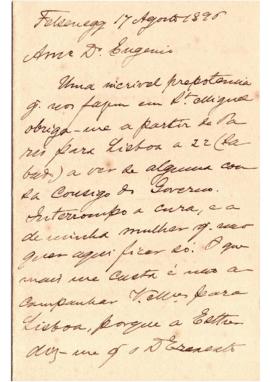 Felsenegg 17 Agosto 1896
Amº Dr. Eugenio
Uma incrivel prepotencia
q. nos fazem em
obriga-me a partir de Pa
ris para Lisboa a 22 (sa
bado) a ver se alguma cou
sa consigo do Governo.
Interrompo a cura, e a
de minha mulher q. nao
quer aqui ficar só. O que
mais me custa é nao a
companhar V. Exª para
Lisboa, porque a Esther
diz-me q o D.